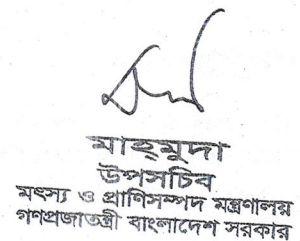 মাহ্‌মুদা
উপসচিব
মৎস্য ও প্রাণিসম্পদ মন্ত্রণালয়
গণপ্রজাতন্ত্রী বাংলাদেশ সরকার